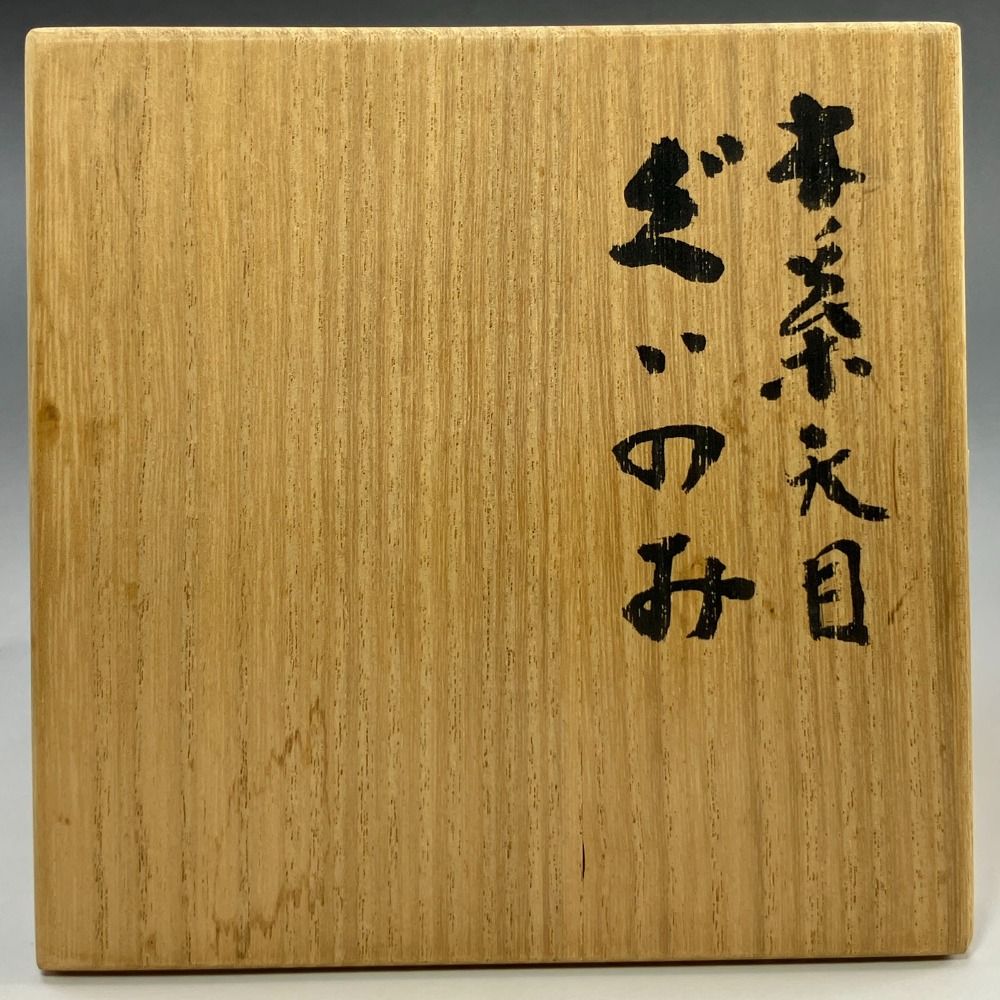 木葉天目
ぐいのみ